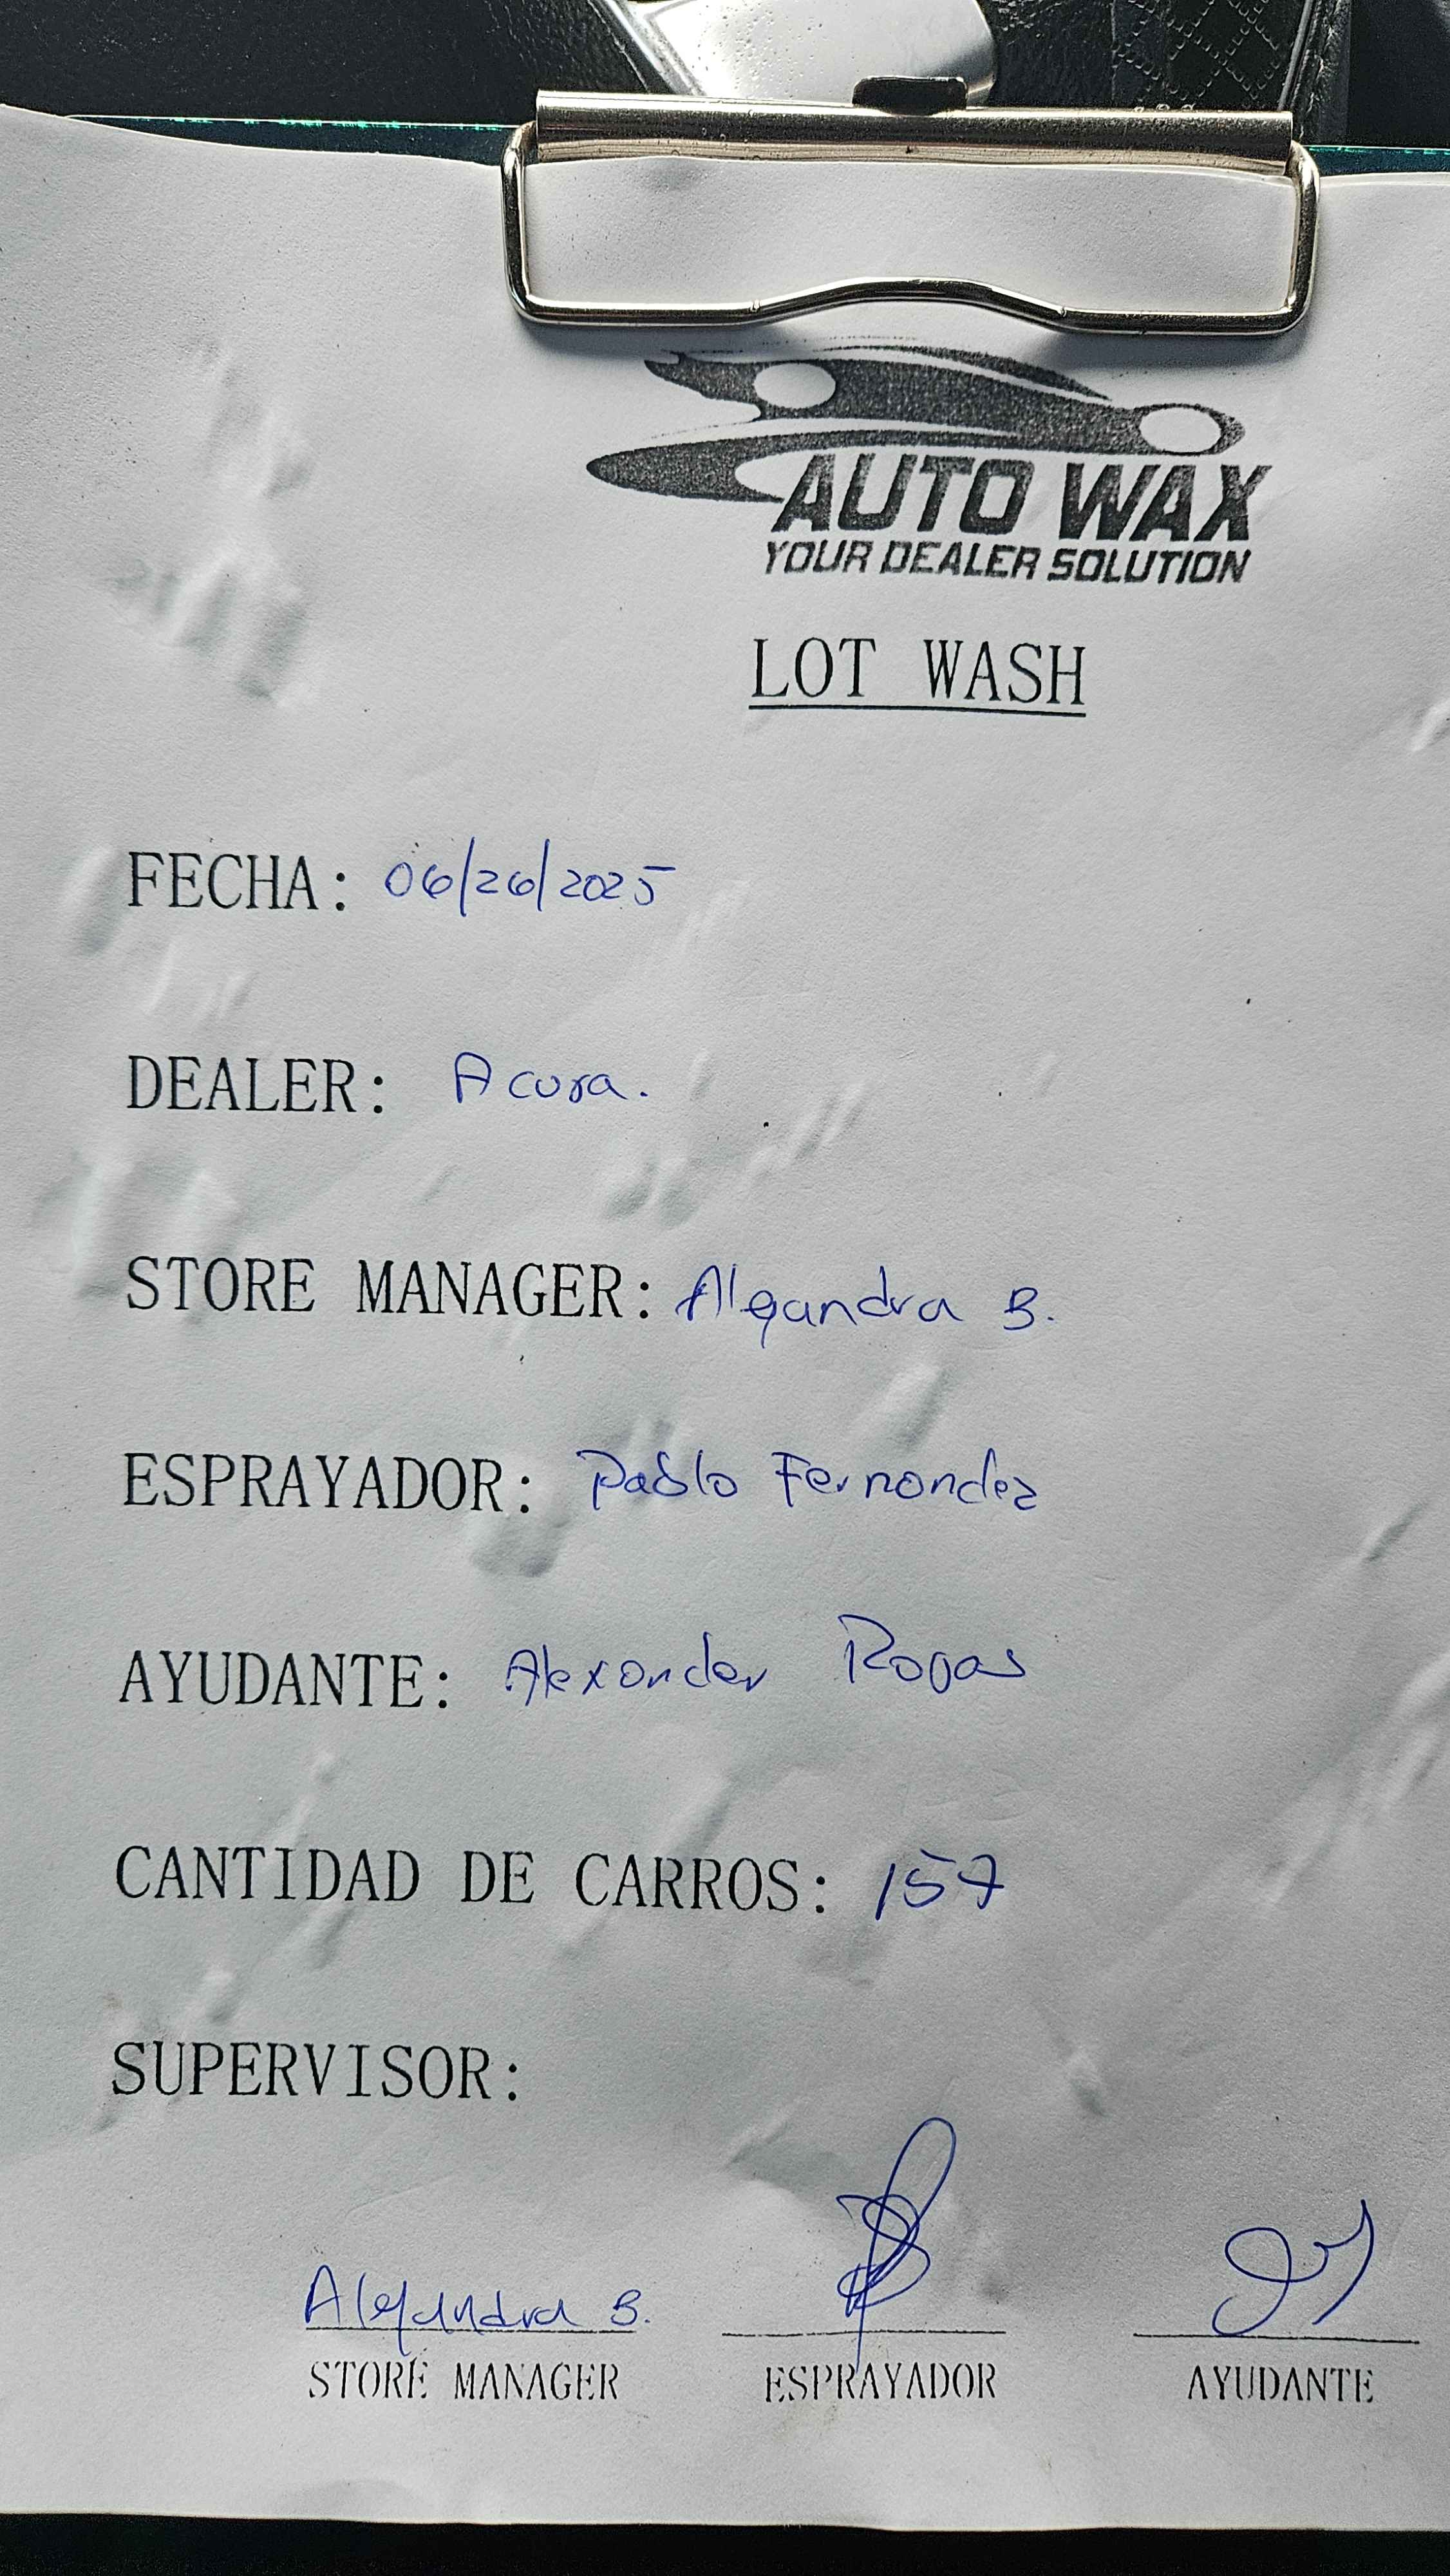 AUTO WAX
YOUR DEALER SOLUTION
LOT WASH
FECHA: 06/26/2025
DEALER: Acura.
STORE MANAGER: Alejandra B.
ESPRAYADOR: Pablo Fernandez
AYUDANTE: Alexander Rojas
CANTIDAD DE CARROS: 157
SUPERVISOR:
Alejandra B.
STORE MANAGER ESPRAYADOR AYUDANTE